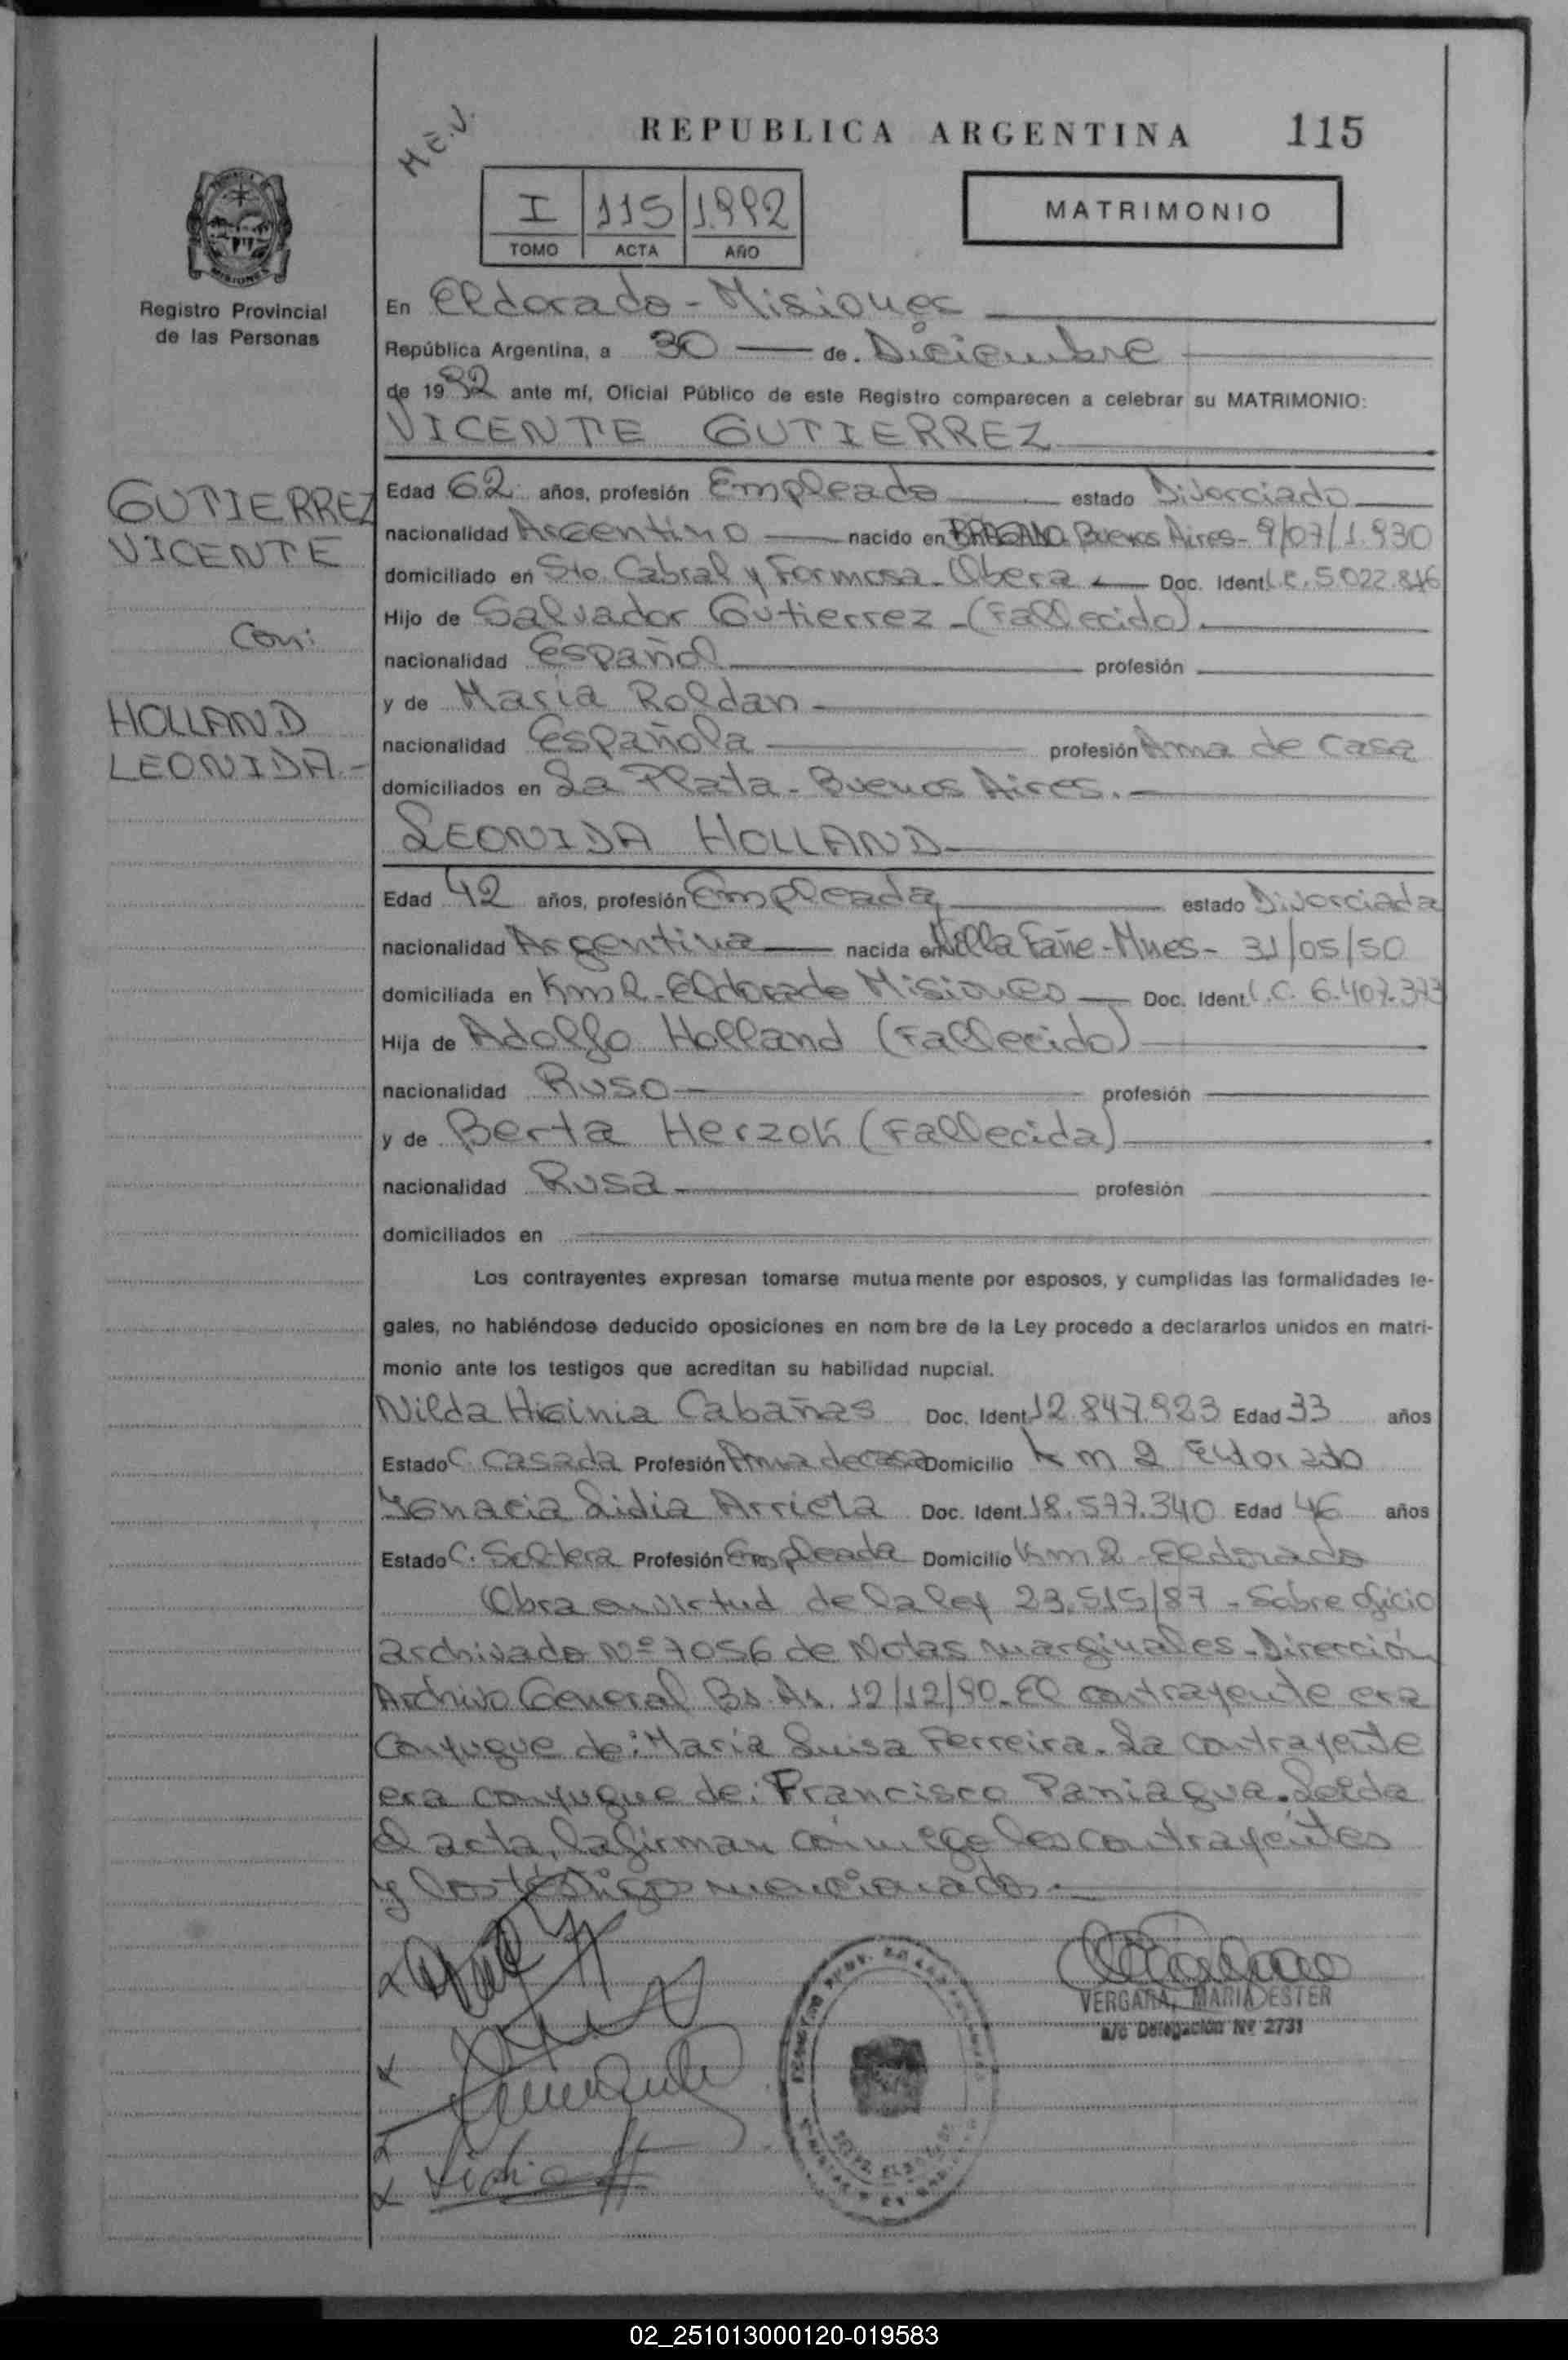 H.E.V.
REPUBLICA ARGENTINA 115
I 115 1.992
TOMO ACTA AÑO
MATRIMONIO
MISIONES
Registro Provincial
de las Personas
GUTIERREZ
VICENTE
Con:
HOLLAND
LEONIDA.-
En Eldorado - Misiones
República Argentina, a 30 de Diciembre
de 1992 ante mí, Oficial Público de este Registro comparecen a celebrar su MATRIMONIO:
VICENTE GUTIERREZ
Edad 62 años, profesión Empleado estado Divorciado
nacionalidad Argentino nacido en Buenos Aires - 9/07/1.930
domiciliado en Sto. Cabral y Formosa - Obera Doc. Ident. L.E. 5.022.846
Hijo de Salvador Gutierrez - (Fallecido)
nacionalidad Español profesión
y de Maria Roldan
nacionalidad Española profesión Ama de casa
domiciliados en La Plata - Buenos Aires.
LEONIDA HOLLAND
Edad 42 años, profesión Empleada estado Divorciada
nacionalidad Argentina nacida en Villa Fañe - Mnes - 31/05/50
domiciliada en Km 2 - Eldorado Misiones Doc. Ident. L.C. 6.407.373
Hija de Adolfo Holland (Fallecido)
nacionalidad Ruso profesión
y de Berta Herzok (Fallecida)
nacionalidad Rusa profesión
domiciliados en
Los contrayentes expresan tomarse mutua mente por esposos, y cumplidas las formalidades le-
gales, no habiéndose deducido oposiciones en nom bre de la Ley procedo a declararlos unidos en matri-
monio ante los testigos que acreditan su habilidad nupcial.
Nilda Higinia Cabañas Doc. Ident. 12.847.923 Edad 33 años
Estado C. Casada Profesión Ama de casa Domicilio Km 2 Eldorado
Ignacia Lidia Arrieta Doc. Ident. 18.577.340 Edad 46 años
Estado C. Soltera Profesión Empleada Domicilio Km 2 - Eldorado
Obra en virtud de la ley 23.515/87 - Sobre oficio
archivado Nº 7056 de Notas marginales - Dirección
Archivo General Bs. As. 12/12/90. El contrayente era
Conyugue de: Maria Luisa Ferreira. La contrayente
era conyugue de: Francisco Paniagua. Leida
el acta, la firman conmigo los contrayentes
y los testigos mencionados.
VERGARA, MARIA ESTER
a/c Delegación Nº 2731
Lidia
02_251013000120-019583